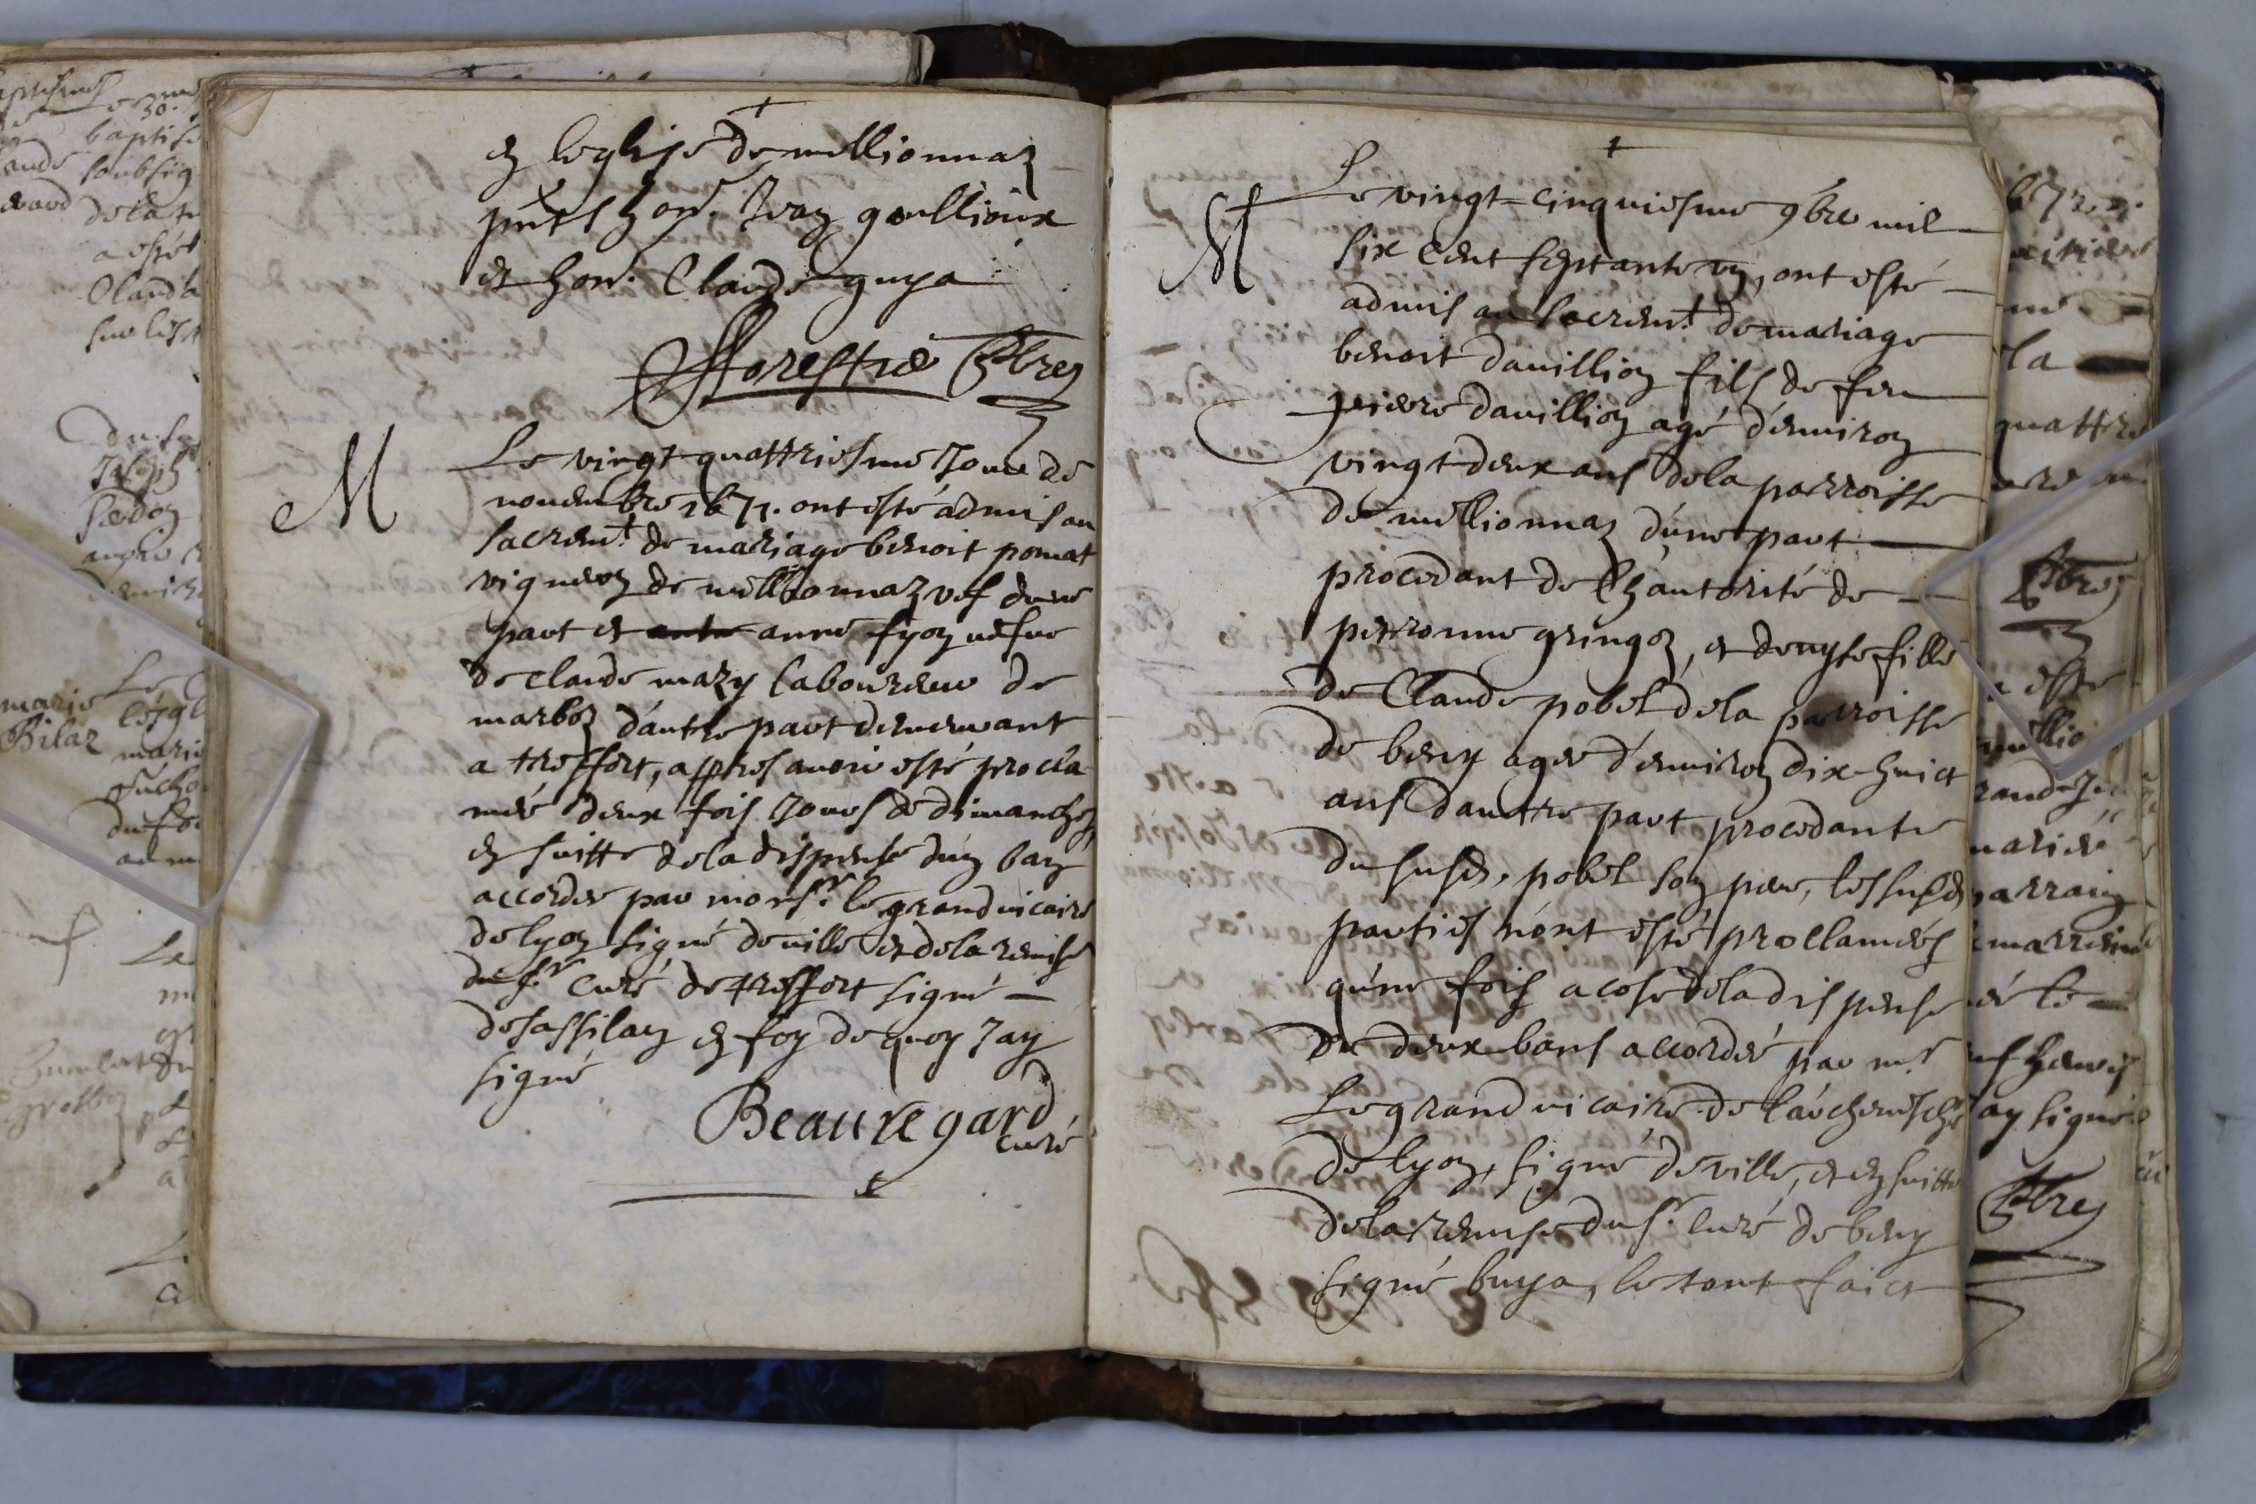 en leglise de meillionnaz
pnts hon. Jean goullioux
et hon. Claude guya
fforestié Pbre
M
Le vingt quattriesme Jour de
nouembre 1671. ont esté admis au
sacremt. de mariage benoit pomat
vigneron de meillionnaz vef dune
part et anne fyon vefue
de Claude mazy laboureur de
marboz d'autre part demeurant
a treffort, appres auoir esté procla
mée deux fois Jours de dimanches
en suitte de la dispense d'un ban
accordée par monsr. le grand vicaire
de lyon signé deuille et de la remise
du sr. curé de treffort signé
desassilay en foy de quoy Jay
signé
Beauregard
curé
M
Le vingt-cinquiesme 9bre mil
six cent septante un, ont esté
admis au sacremt. de mariage
benoit dauillion fils de feu
pierre dauillion agé d'enuiron
vingt deux ans de la parroisse
de meillionnaz d'une part
procedant de lhautorité de
perronne gringoz, et denyse fille
de Claude pobel de la parroisse
de beny agee d'enuiron dix-huict
ans dauttre part procedante
du susd. pobel son pere, lessusd
parties n'ont esté proclamées
qu'une fois a cose de la dispense
de deux bans accordée par mr
Le grand vicaire de l'archeuesché
de lyon, signé deville, et en suitte
de la remise du sr. curé de beny
signé buya, le tout faict